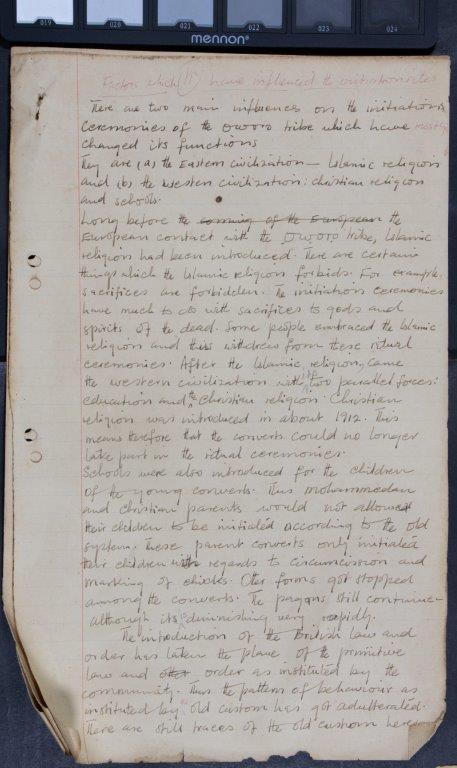 019 020 021 022 023 024
mennon
Factors which (11) have influenced the initiation rites
There are two main influences on the initiation
Ceremonies of the OWORO tribe which have mostly
changed its functions
They are (a) the Eastern civilization — Islamic religion
and (b) the western civilization: christian religion
and schools.
Long before the coming of the European the
European contact with the OWORO tribe, Islamic
religion had been introduced. There are certain
things which the Islamic religion forbids. For example,
sacrifices are forbidden. The initiation ceremonies
have much to do with sacrifices to gods and
spirits of the dead. Some people embraced the Islamic
religion and thus withdrew from these ritual
ceremonies. After the Islamic religion, came
the western civilization with its two paralled forces:
education and the Christian religion. Christian
religion was introduced in about 1912. This
means therefore that the converts could no longer
take part in the ritual ceremonies.
Schools were also introduced for the children
of the young converts. Thus mohammedan
and christian parents would not allowed
their children to be initiated according to the old
system. These parent converts only initiated
their children with regards to circumcission and
marking of chicks. Other forms got stopped
among the converts. The pagans still continue
although its diminishing very rapidly.
The introduction of the British law and
order has taken the plane of the primitive
law and other order as instituted by the
community. Thus the pattern of behaviour as
instituted by old custom has got adulterated.
There are still traces of the old custom here